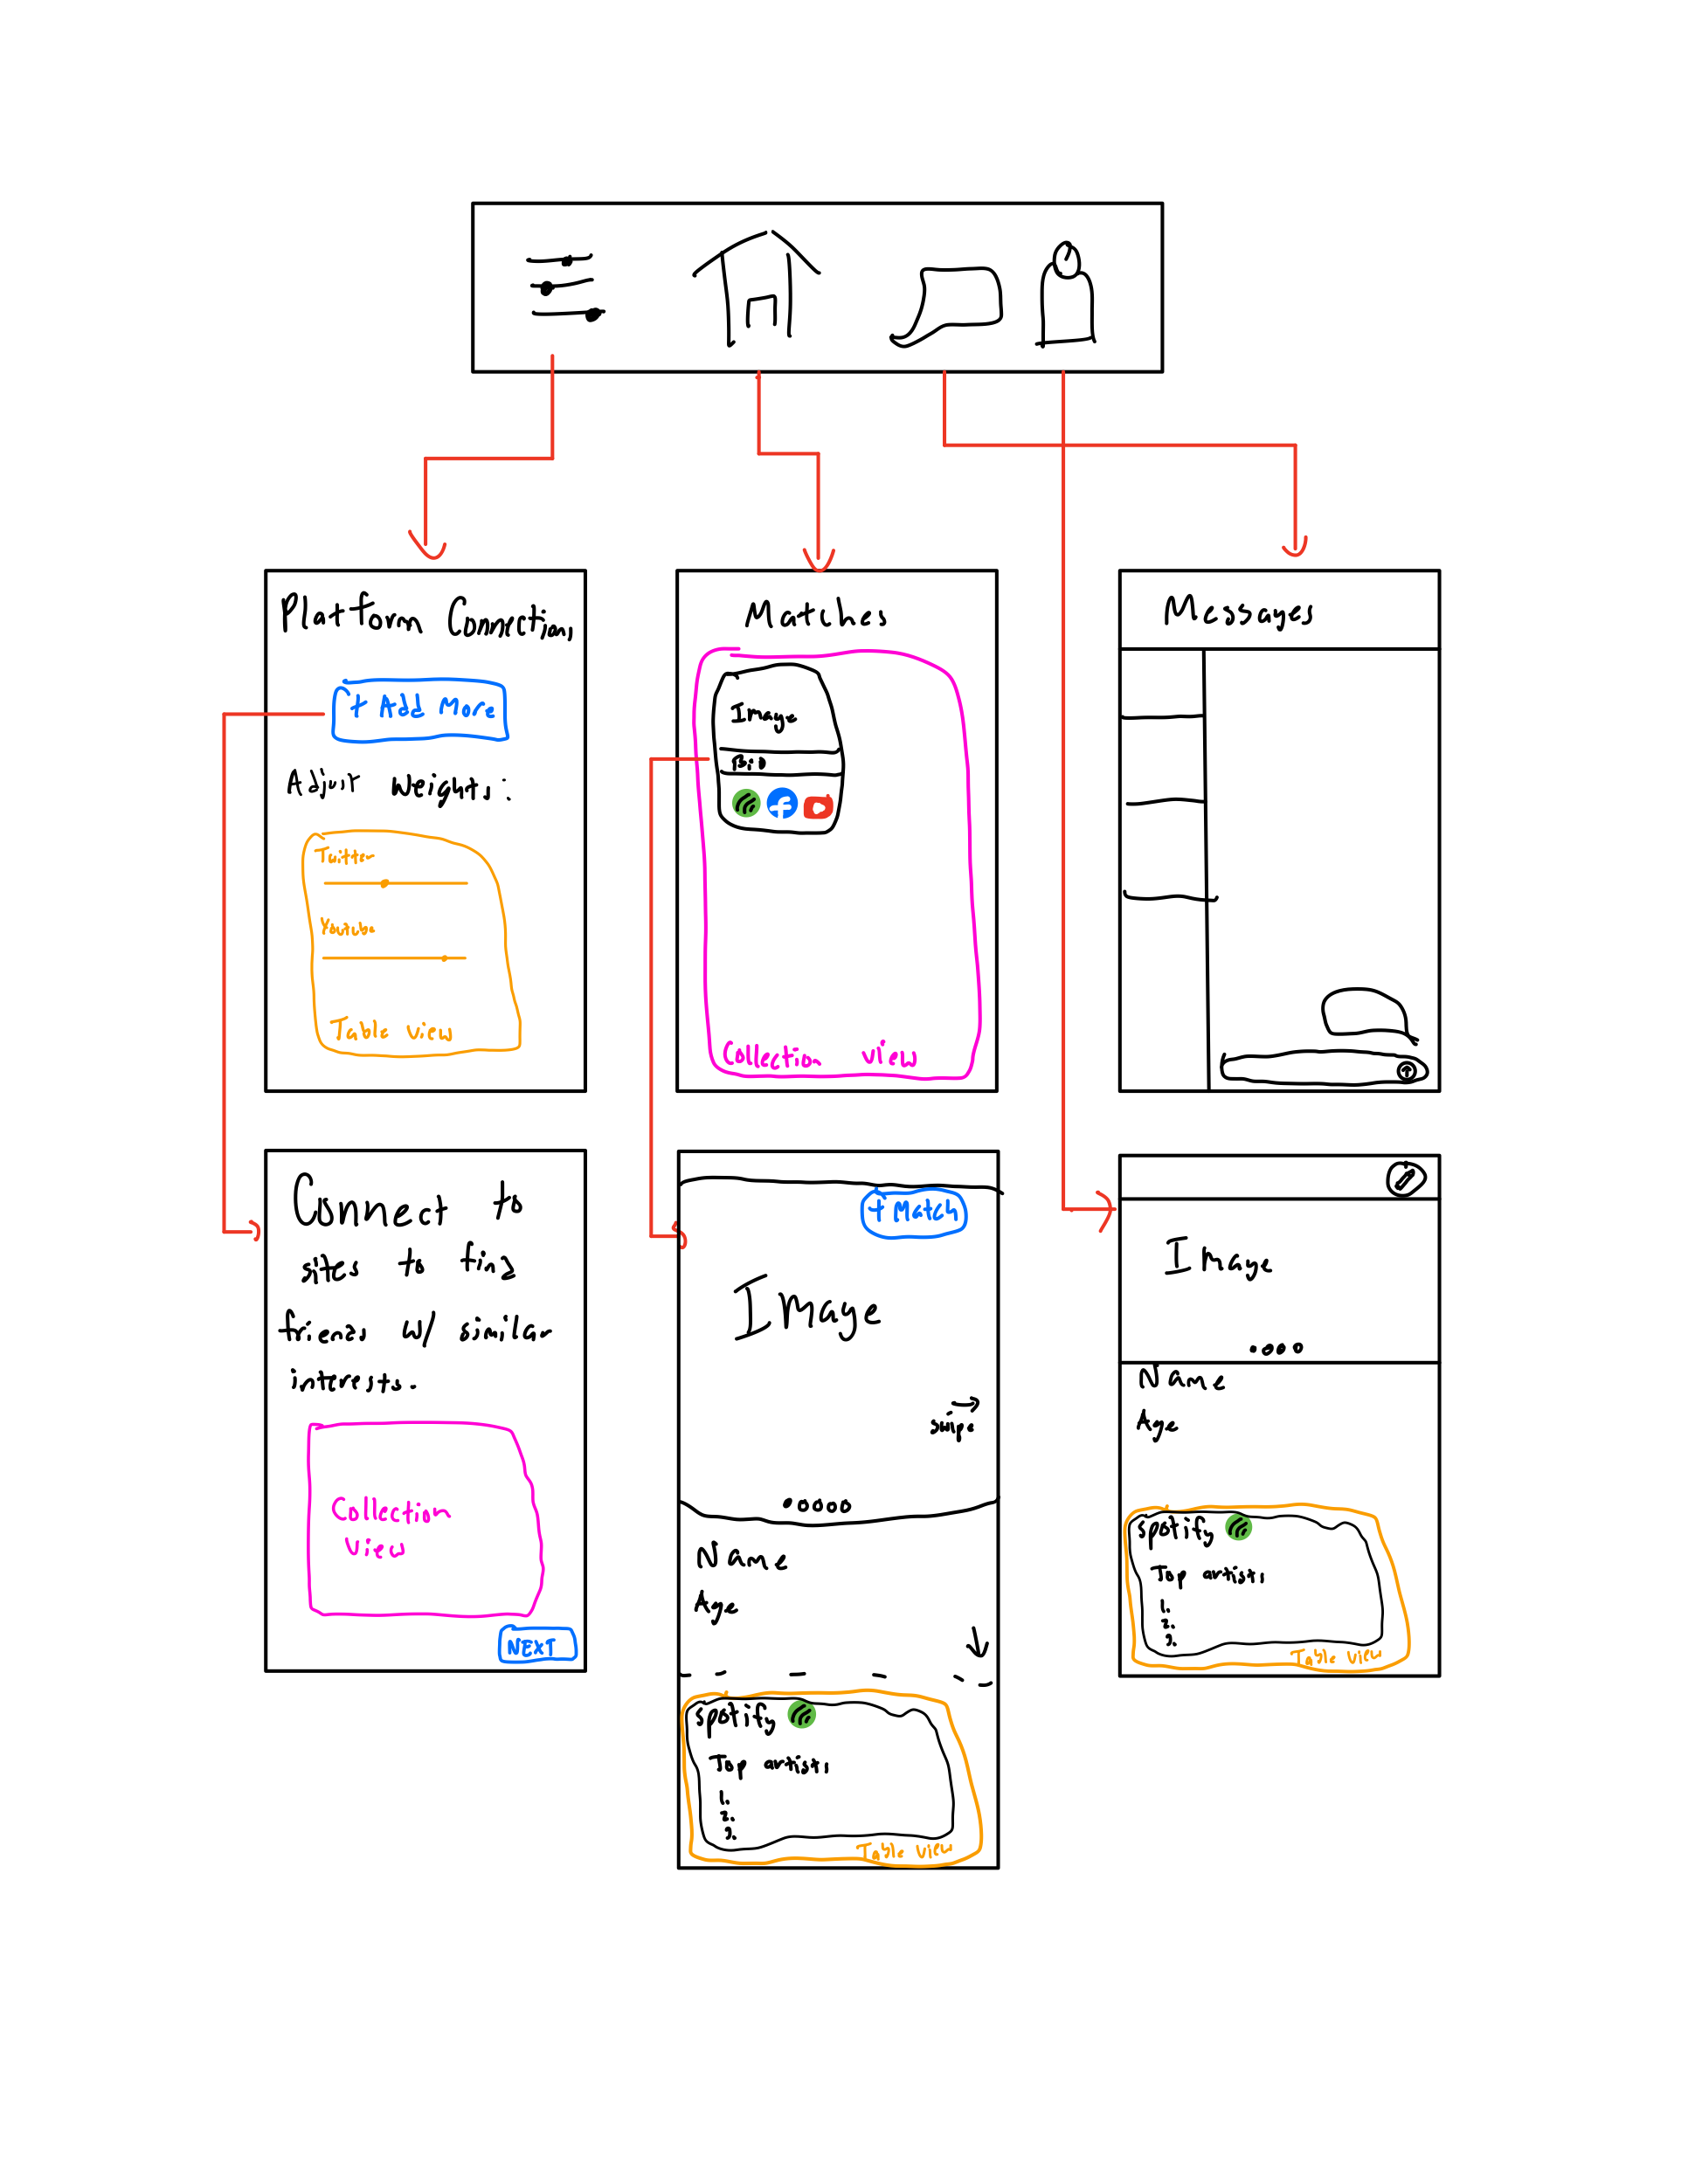 Platform Connections
+ Add More
Adjust Weights:
Twitter
Youtube
Table view
Matches
Image
Bio
Collection view
Messages
Connect to
sites to find
friends w/ similar
interests.
Collection
view
NEXT
+ Match
Image
swipe
Name
Age
spotify
Top artists
1.
2.
3.
Table view
Image
Name
Age
spotify
Top artists
1.
2.
3.
Table view